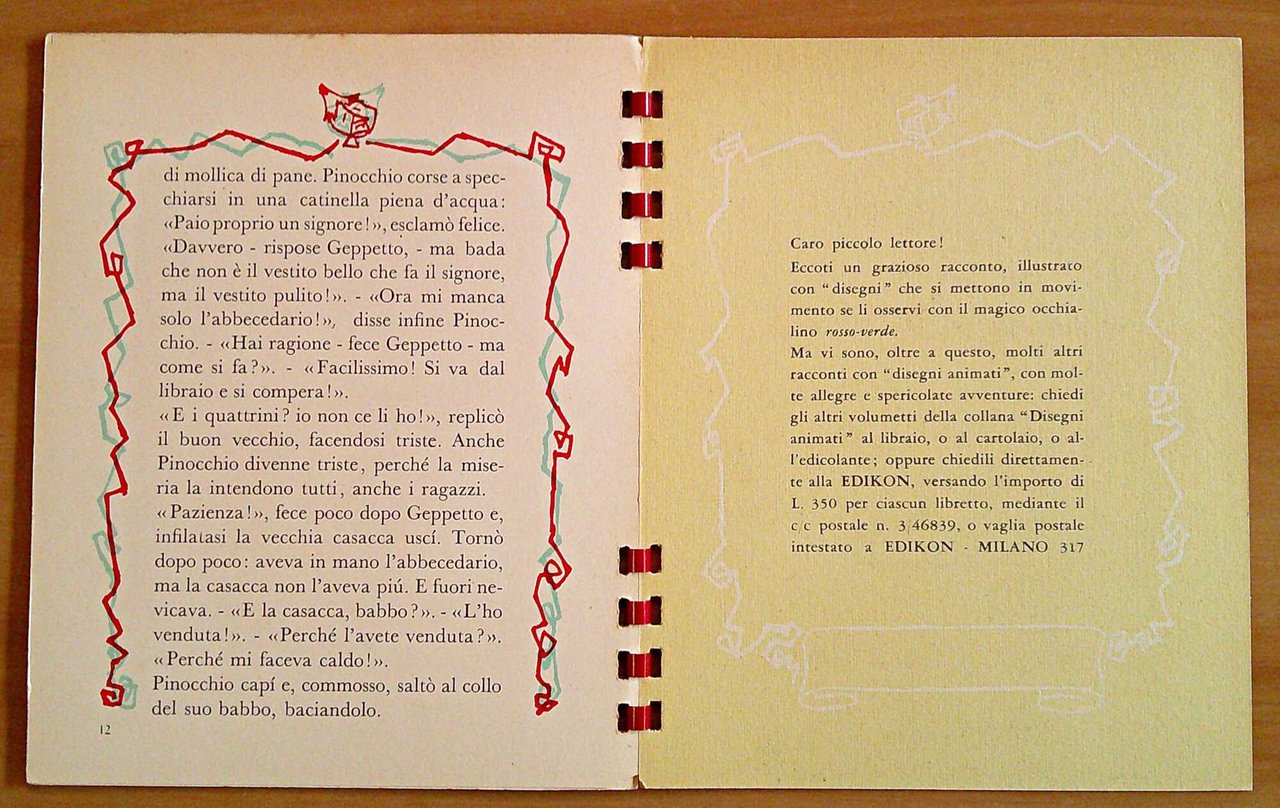 di mollica di pane. Pinocchio corse a spec-
chiarsi in una catinella piena d'acqua:
«Paio proprio un signore!», esclamò felice.
«Davvero - rispose Geppetto, - ma bada
che non è il vestito bello che fa il signore,
ma il vestito pulito!». - «Ora mi manca
solo l'abbecedario!», disse infine Pinoc-
chio. - «Hai ragione - fece Geppetto - ma
come si fa?». - «Facilissimo! Si va dal
libraio e si compera!».
«E i quattrini? io non ce li ho!», replicò
il buon vecchio, facendosi triste. Anche
Pinocchio divenne triste, perché la mise-
ria la intendono tutti, anche i ragazzi.
«Pazienza!», fece poco dopo Geppetto e,
infilatasi la vecchia casacca uscí. Tornò
dopo poco: aveva in mano l'abbecedario,
ma la casacca non l'aveva piú. E fuori ne-
vicava. - «E la casacca, babbo?». - «L'ho
venduta!». - «Perché l'avete venduta?».
«Perché mi faceva caldo!».
Pinocchio capí e, commosso, saltò al collo
del suo babbo, baciandolo.
12
Caro piccolo lettore!
Eccoti un grazioso racconto, illustrato
con "disegni" che si mettono in movi-
mento se li osservi con il magico occhia-
lino rosso-verde.
Ma vi sono, oltre a questo, molti altri
racconti con "disegni animati", con mol-
te allegre e spericolate avventure: chiedi
gli altri volumetti della collana "Disegni
animati" al libraio, o al cartolaio, o al-
l'edicolante; oppure chiedili direttamen-
te alla EDIKON, versando l'importo di
L. 350 per ciascun libretto, mediante il
c/c postale n. 3/46839, o vaglia postale
intestato a EDIKON - MILANO 317